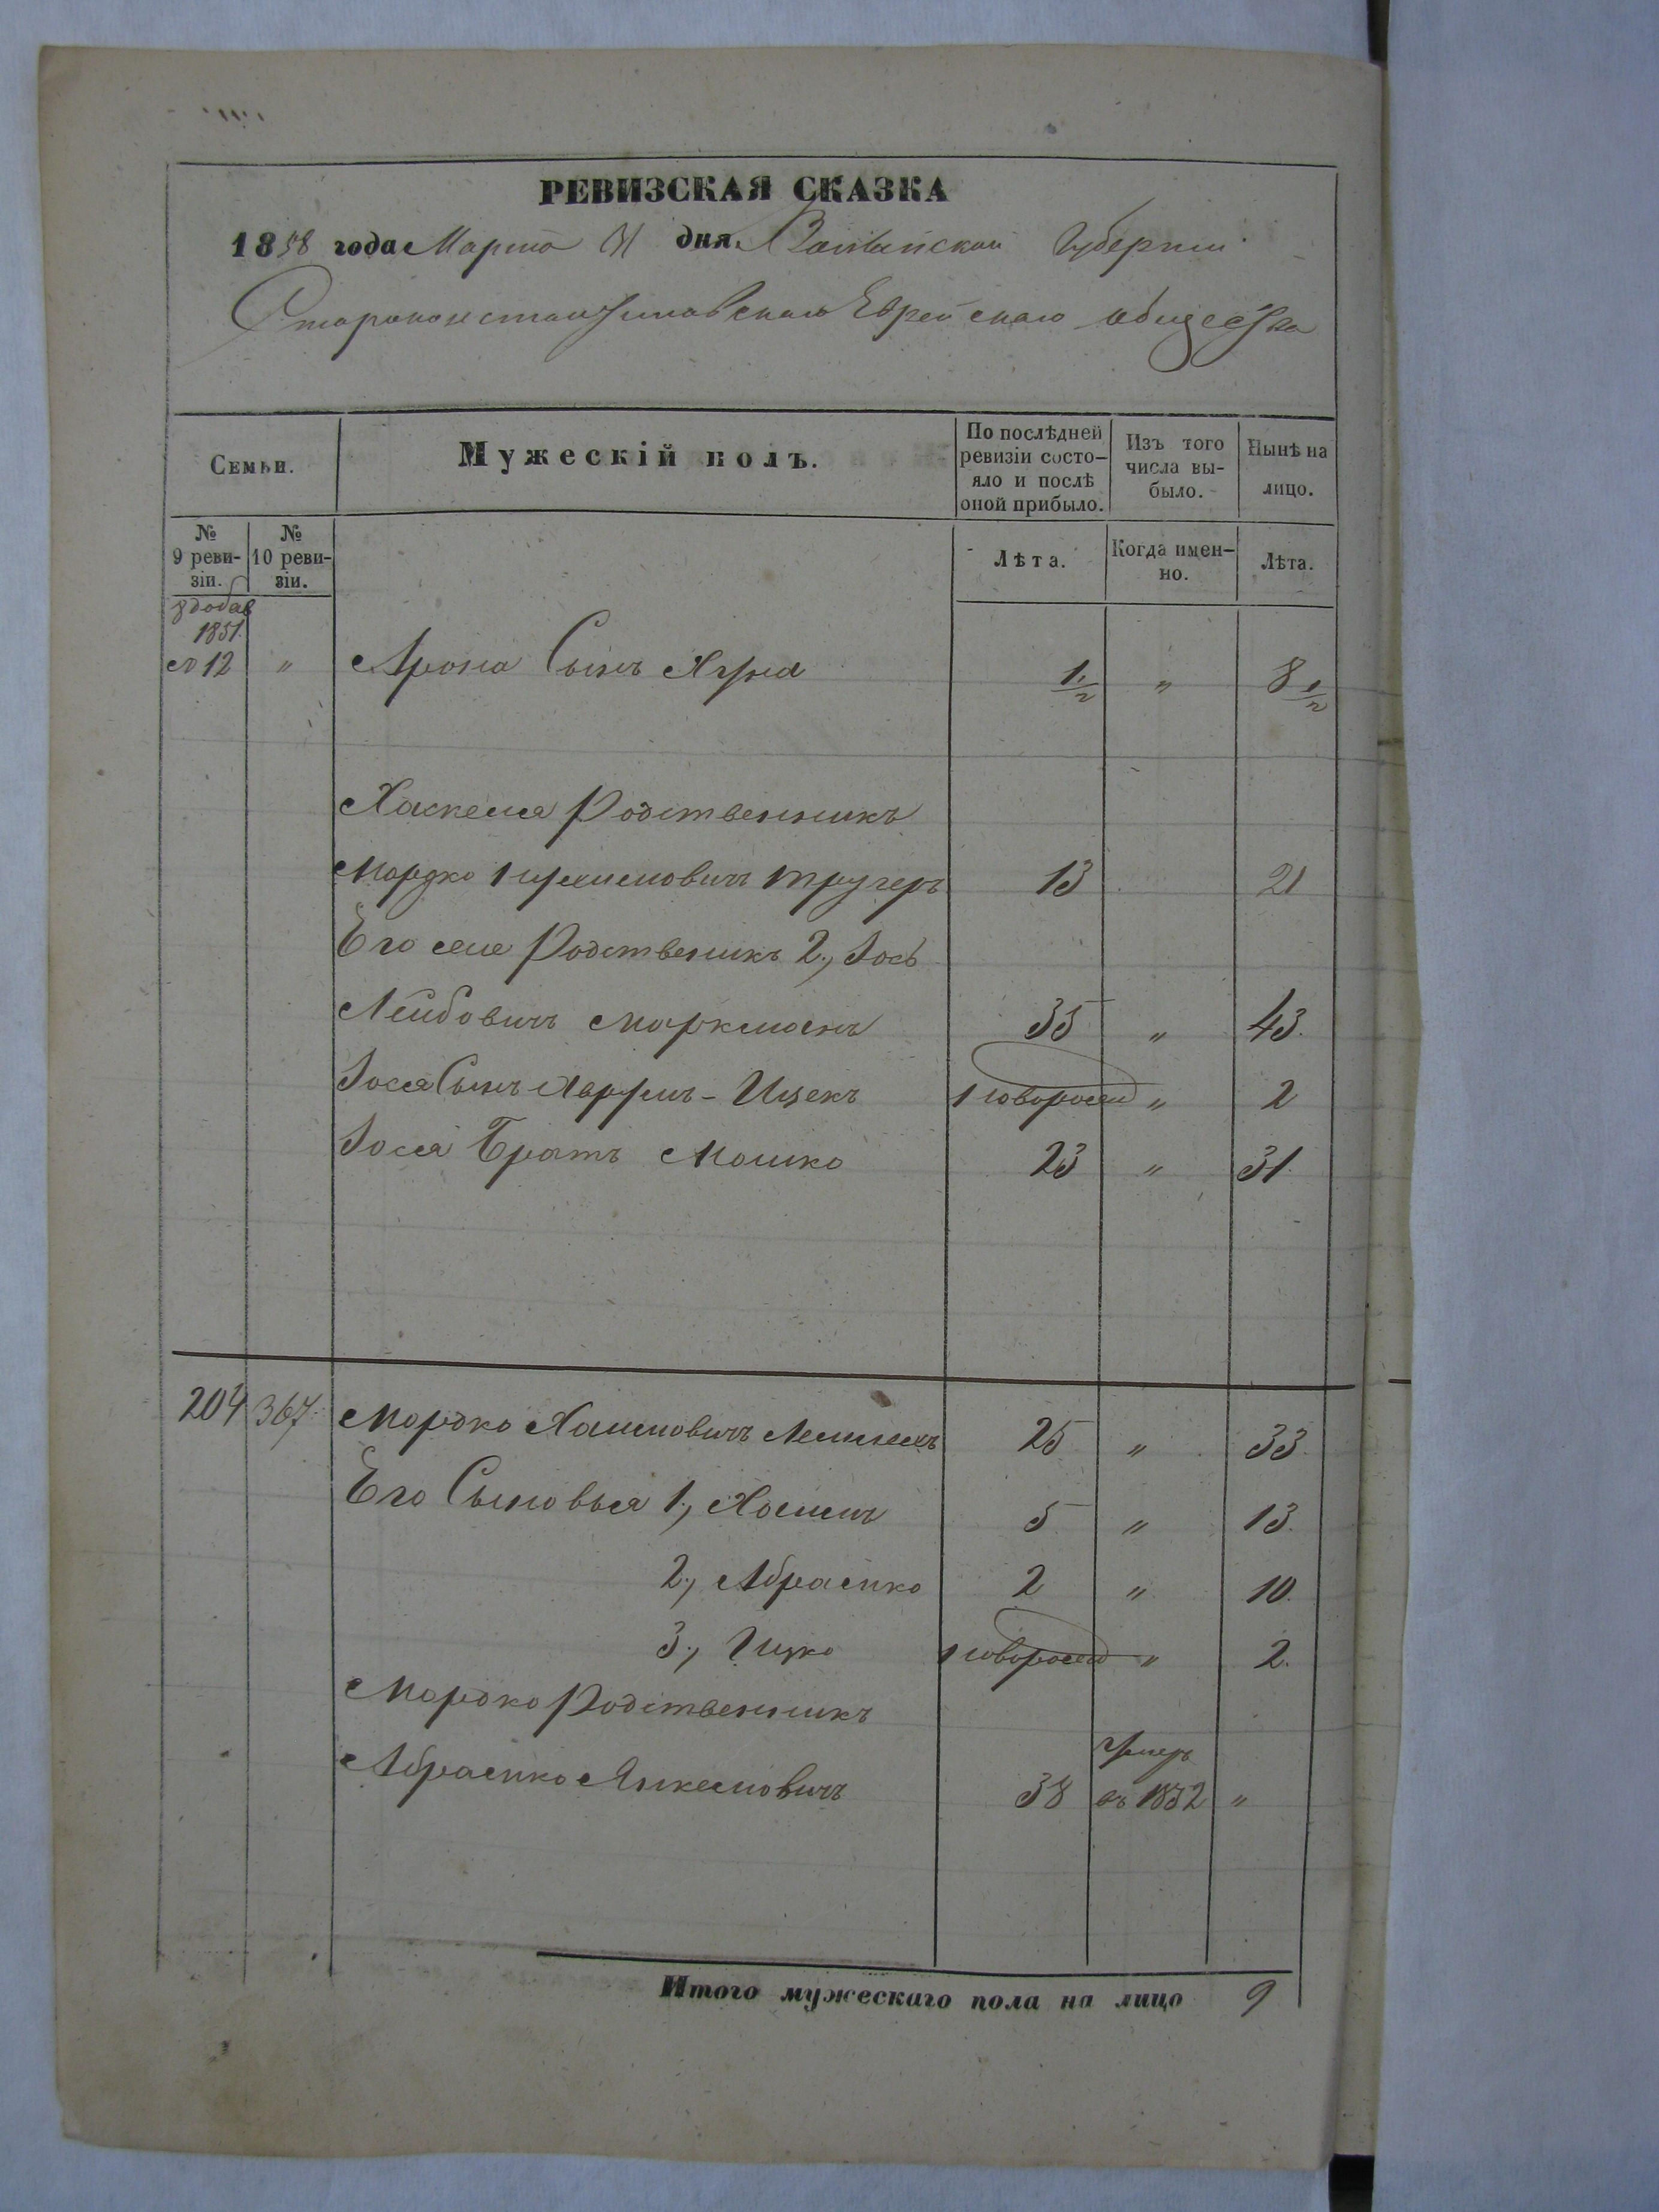 РЕВИЗСКАЯ СКАЗКА
1858 года Марта 31 дня. Волынской Губернии
Староконстантиновскаго Еврейскаго общества
Семьи.
Мужескій полъ.
По послѣдней ревизіи состо-
яло и послѣ
оной прибыло.
Изъ того
числа вы-
было.
Нынѣ на
лицо.
№
9 реви-
зіи.
№
10 реви-
зіи.
Лѣта.
Когда имен-
но.
Лѣта.
добав
1851.
№ 12 " Арона Сынъ 1/2 " 8 1/2
Хаскеля Родственникъ
Мордко 13 21
Его же Родственикъ 2., Іось
Лейбовичъ Маркманъ 35 " 43.
Іося Сынъ Ицекъ новорожд " 2
Іося Братъ Мошко 23 " 31.
204 367. Мордко Хаимовичъ 25 " 33.
Его Сыновья 1., Хаимъ 5 " 13.
2., Абрамко 2 " 10.
3., Ицко новорожд " 2.
Мордко Родственникъ
Абрамко Янкелиовичъ 38 умеръ въ 1852 "
Итого мужескаго пола на лицо 9